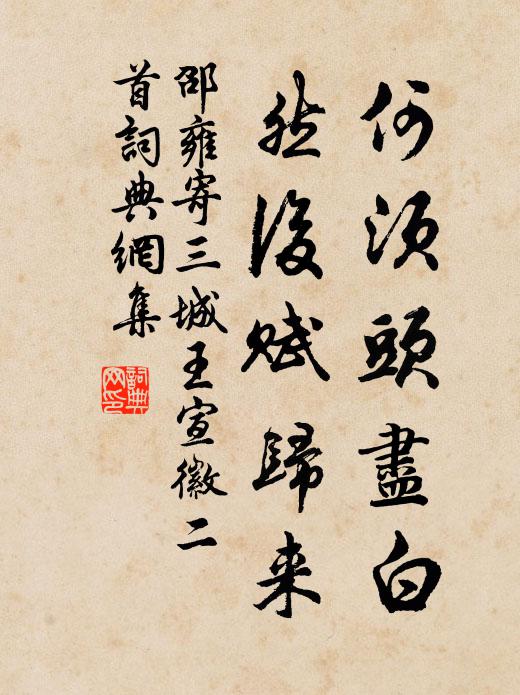 何須頭盡白
然後賦歸来
邵雍寄三城王宣徽二
首詞典網集
詞典
网印